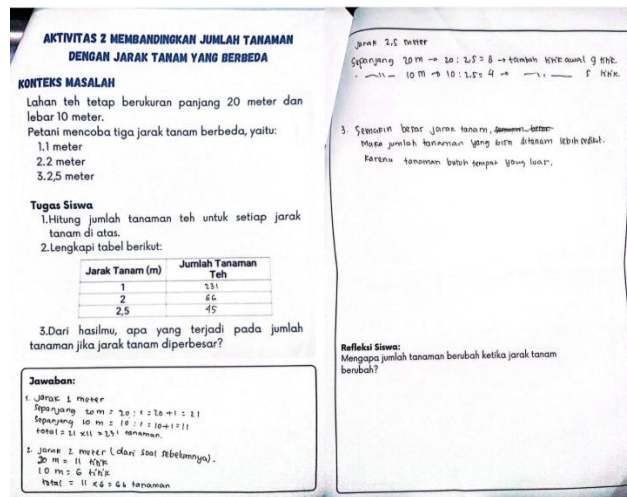 AKTIVITAS 2 MEMBANDINGKAN JUMLAH TANAMAN
DENGAN JARAK TANAM YANG BERBEDA
KONTEKS MASALAH
Lahan teh tetap berukuran panjang 20 meter dan
lebar 10 meter.
Petani mencoba tiga jarak tanam berbeda, yaitu:
1.1 meter
2.2 meter
3.2,5 meter
Tugas Siswa
1.Hitung jumlah tanaman teh untuk setiap jarak
tanam di atas.
2.Lengkapi tabel berikut:
Jarak Tanam (m) Jumlah Tanaman Teh
1 231
2 66
2,5 45
3.Dari hasilmu, apa yang terjadi pada jumlah
tanaman jika jarak tanam diperbesar?
Jawaban:
1. Jarak 1 meter
Sepanjang 20 m = 20 : 1 = 20 + 1 = 21
Sepanjang 10 m = 10 : 1 = 10 + 1 = 11
total = 21 x 11 = 231 tanaman.
2. Jarak 2 meter (dari soal sebelumnya).
20 m = 11 titik
10 m = 6 titik
total = 11 x 6 = 66 tanaman
Jarak 2,5 meter
Sepanjang 20 m → 20 : 2,5 = 8 → tambah titik awal 9 titik
. —"— 10 m → 10 : 2,5 = 4 → —"— 5 titik.
3. Semakin besar jarak tanam,
Maka jumlah tanaman yang bisa ditanam lebih sedikit.
Karena tanaman butuh tempat yang luas.
Refleksi Siswa:
Mengapa jumlah tanaman berubah ketika jarak tanam
berubah?